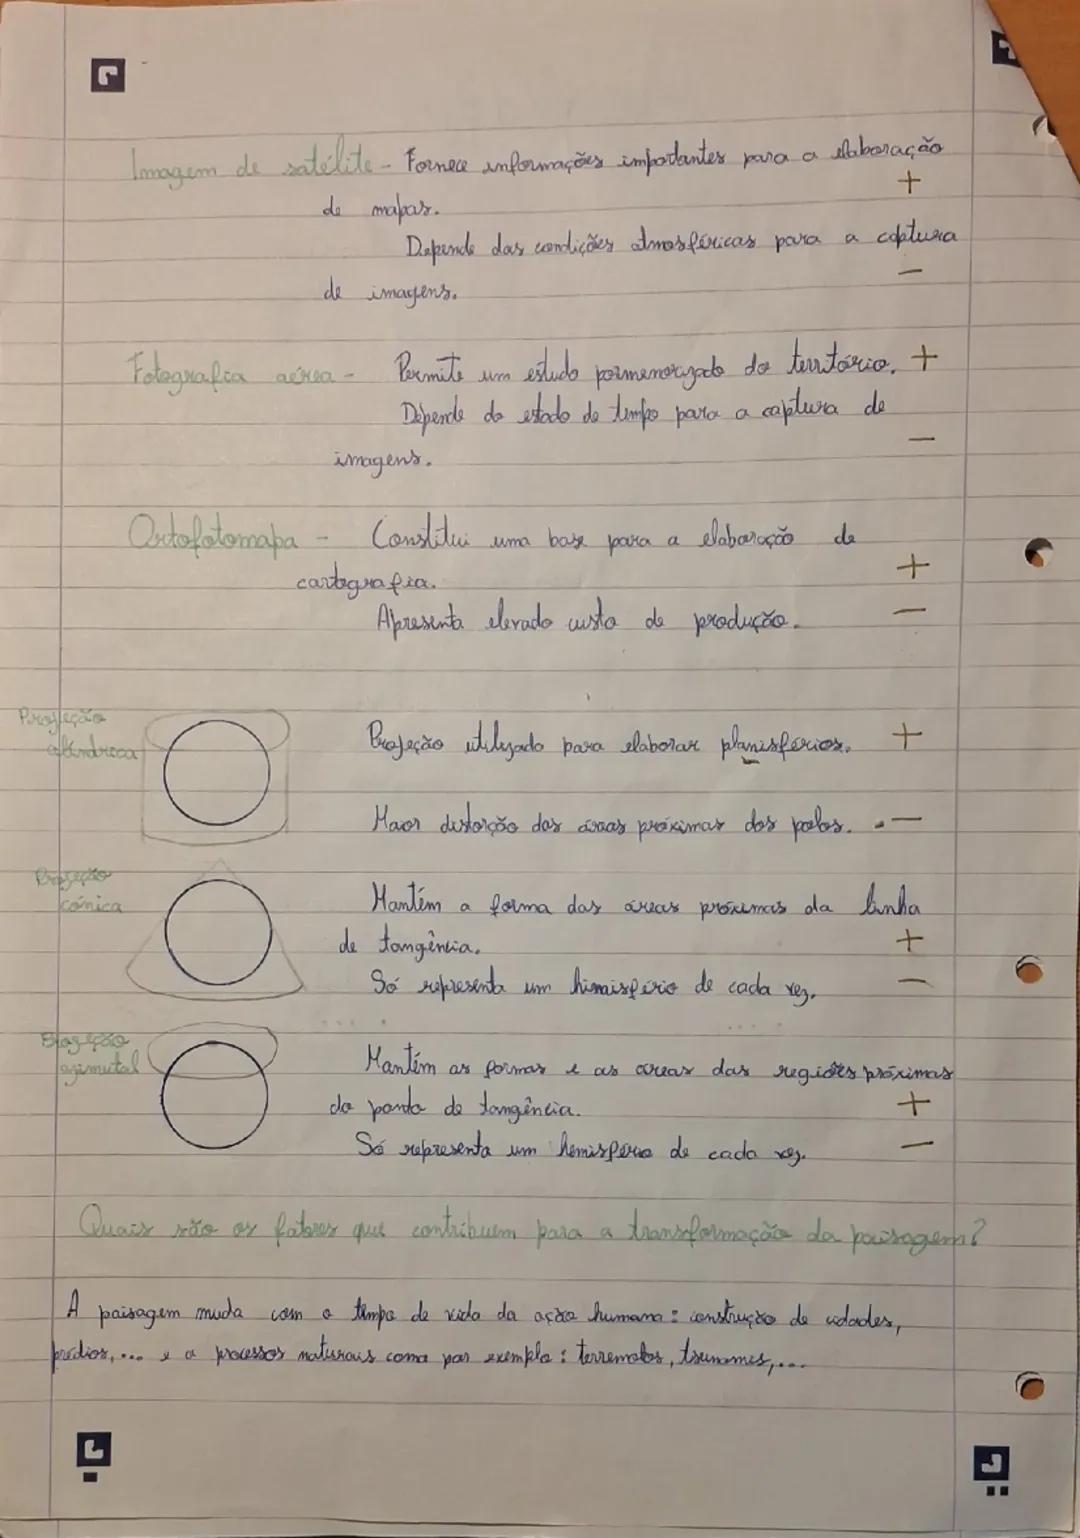 Imagem de satélite - Fornece informações importantes para a elaboração
+
de mapas.
Depende das condições atmosféricas para a captura
-
de imagens.
Fotografia aérea - Permite um estudo pormenorizado do território. +
Depende do estado de tempo para a captura de
-
imagens.
Ortofotomapa - Constitui uma base para a elaboração de
+
cartografia.
Apresenta elevado custo de produção. -
Projeção
cilíndrica
Projeção utilizada para elaborar planisférios. +
Maor distorção das áreas próximas dos polos. -
Projeção
cónica
Mantém a forma das áreas próximas da linha
de tangência. +
Só representa um himisfério de cada vez. -
Projeção
azimutal
Mantém as formas e as áreas das regiões próximas
do ponto de tangência. +
Só representa um hemisfério de cada vez. -
Quais são os fatores que contribuem para a transformação da paisagem?
A paisagem muda com o tempo de vido da ação humana : construção de cidades,
prédios, ... e a processos naturais como por exemplo : terremotos, tsunames, ...